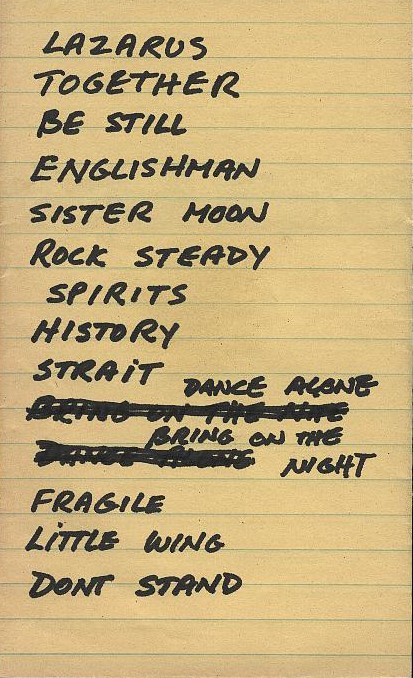 LAZARUS
TOGETHER
BE STILL
ENGLISHMAN
SISTER MOON
ROCK STEADY
SPIRITS
HISTORY
STRAIT
DANCE ALONE
BRING ON THE NITE
BRING ON THE
DANCE ALONE
NIGHT
FRAGILE
LITTLE WING
DONT STAND